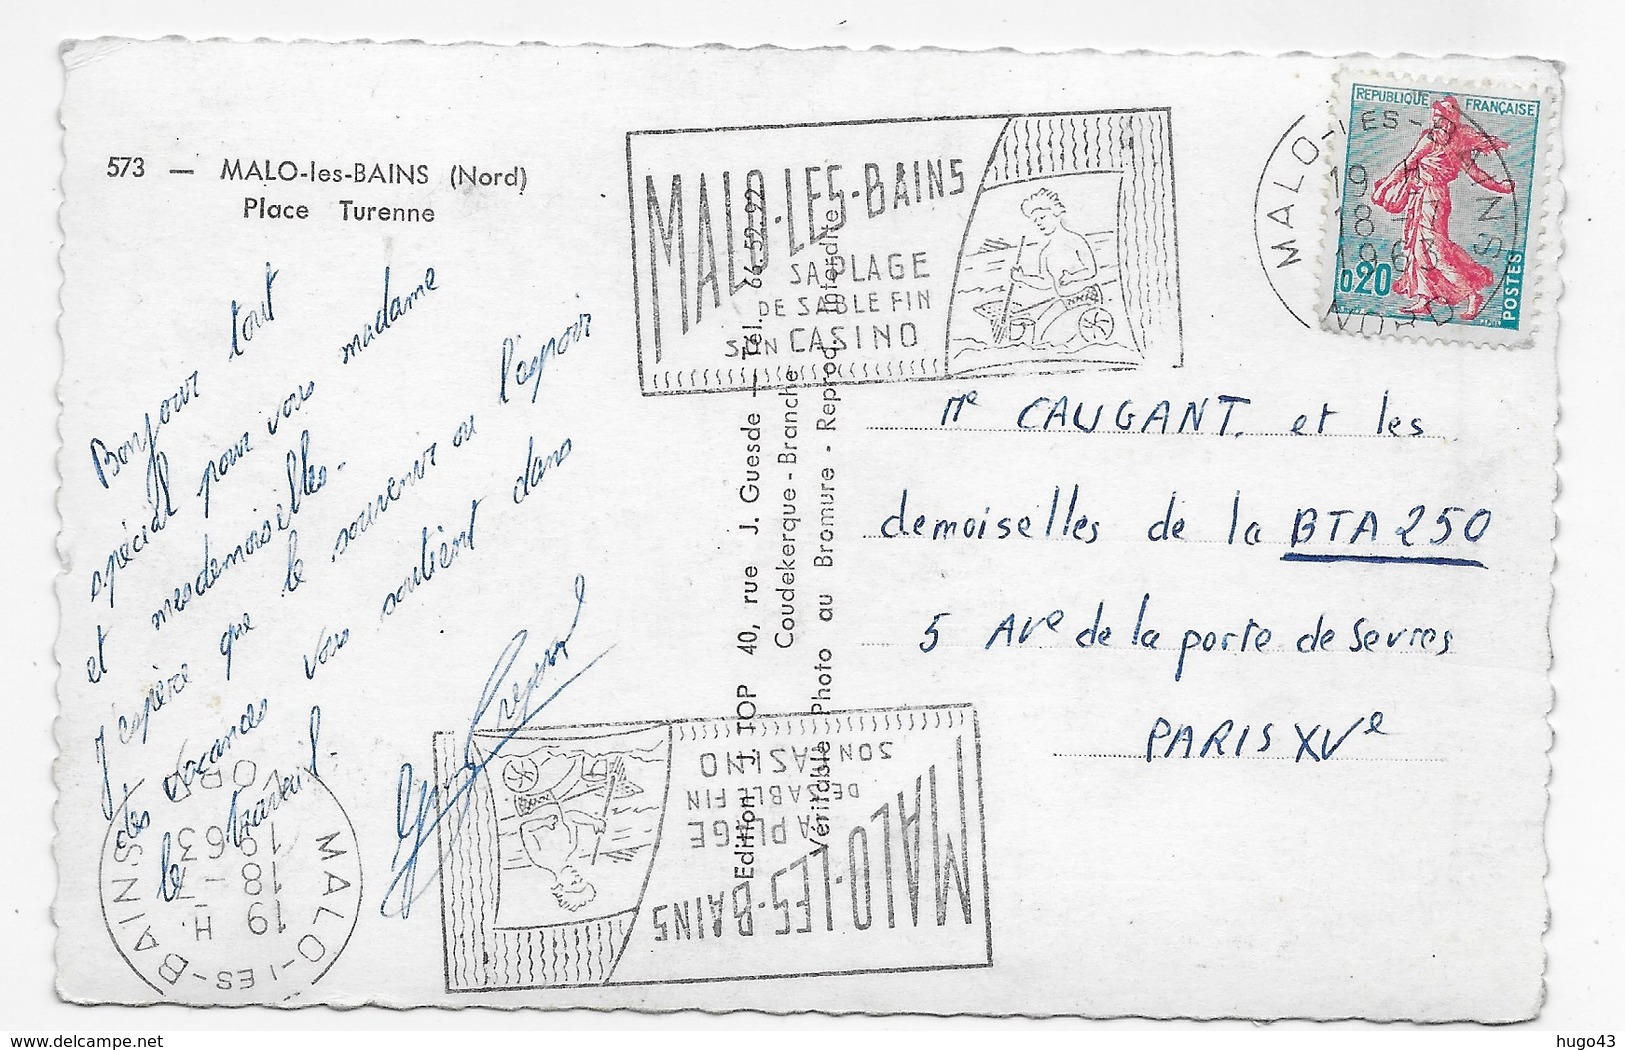 573 — MALO-les-BAINS (Nord)
Place Turenne
Bonjour tout
spécial pour vous madame
et mesdemoiselles.
J'espère que le souvenir ou l'espoir
des vacances vous soutient dans
le travail.
Edition J. TOP 40, rue J. Guesde — Tél. 66.52.92
Coudekerque-Branche
Véritable Photo au Bromure - Reprod. interdite
MALO-LES-BAINS
SA PLAGE
DE SABLE FIN
SON CASINO
REPUBLIQUE FRANÇAISE
0,20
POSTES
MALO-LES-BAINS
19 H
18 - 7
1963
NORD
Me CAUGANT. et les
demoiselles de la BTA 250
5 Ave de la porte de Sevres
PARIS XVe
MALO-LES-BAINS
SA PLAGE
DE SABLE FIN
SON CASINO
MALO-LES-BAINS
19 H.
18 - 7
1963
NORD
delcampe.net
hugo43